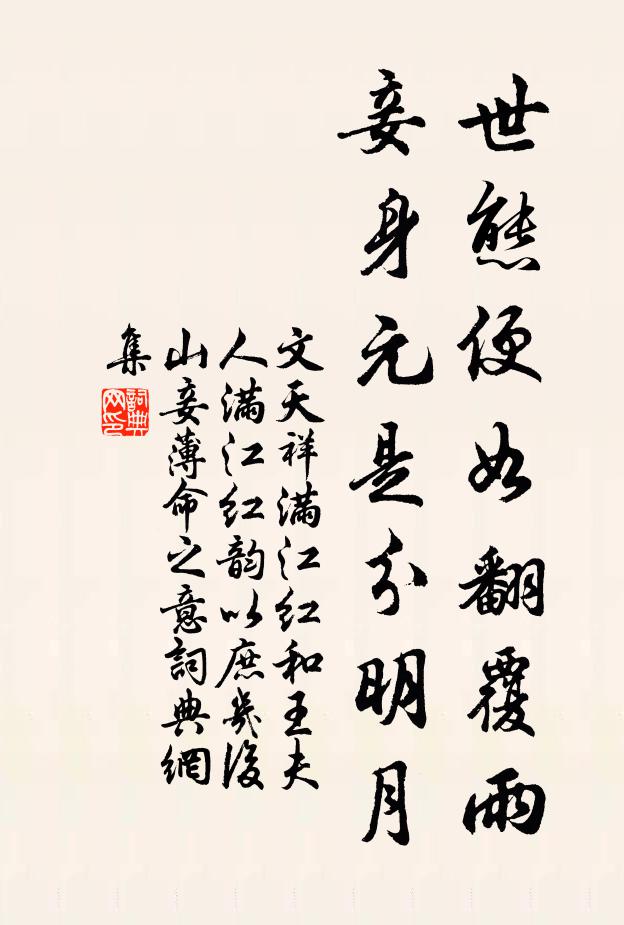 世態便如翻覆雨
妾身元是分明月
文天祥滿江紅和王夫
人滿江紅韵以庶幾後
山妾薄命之意詞典網
集
詞典網印